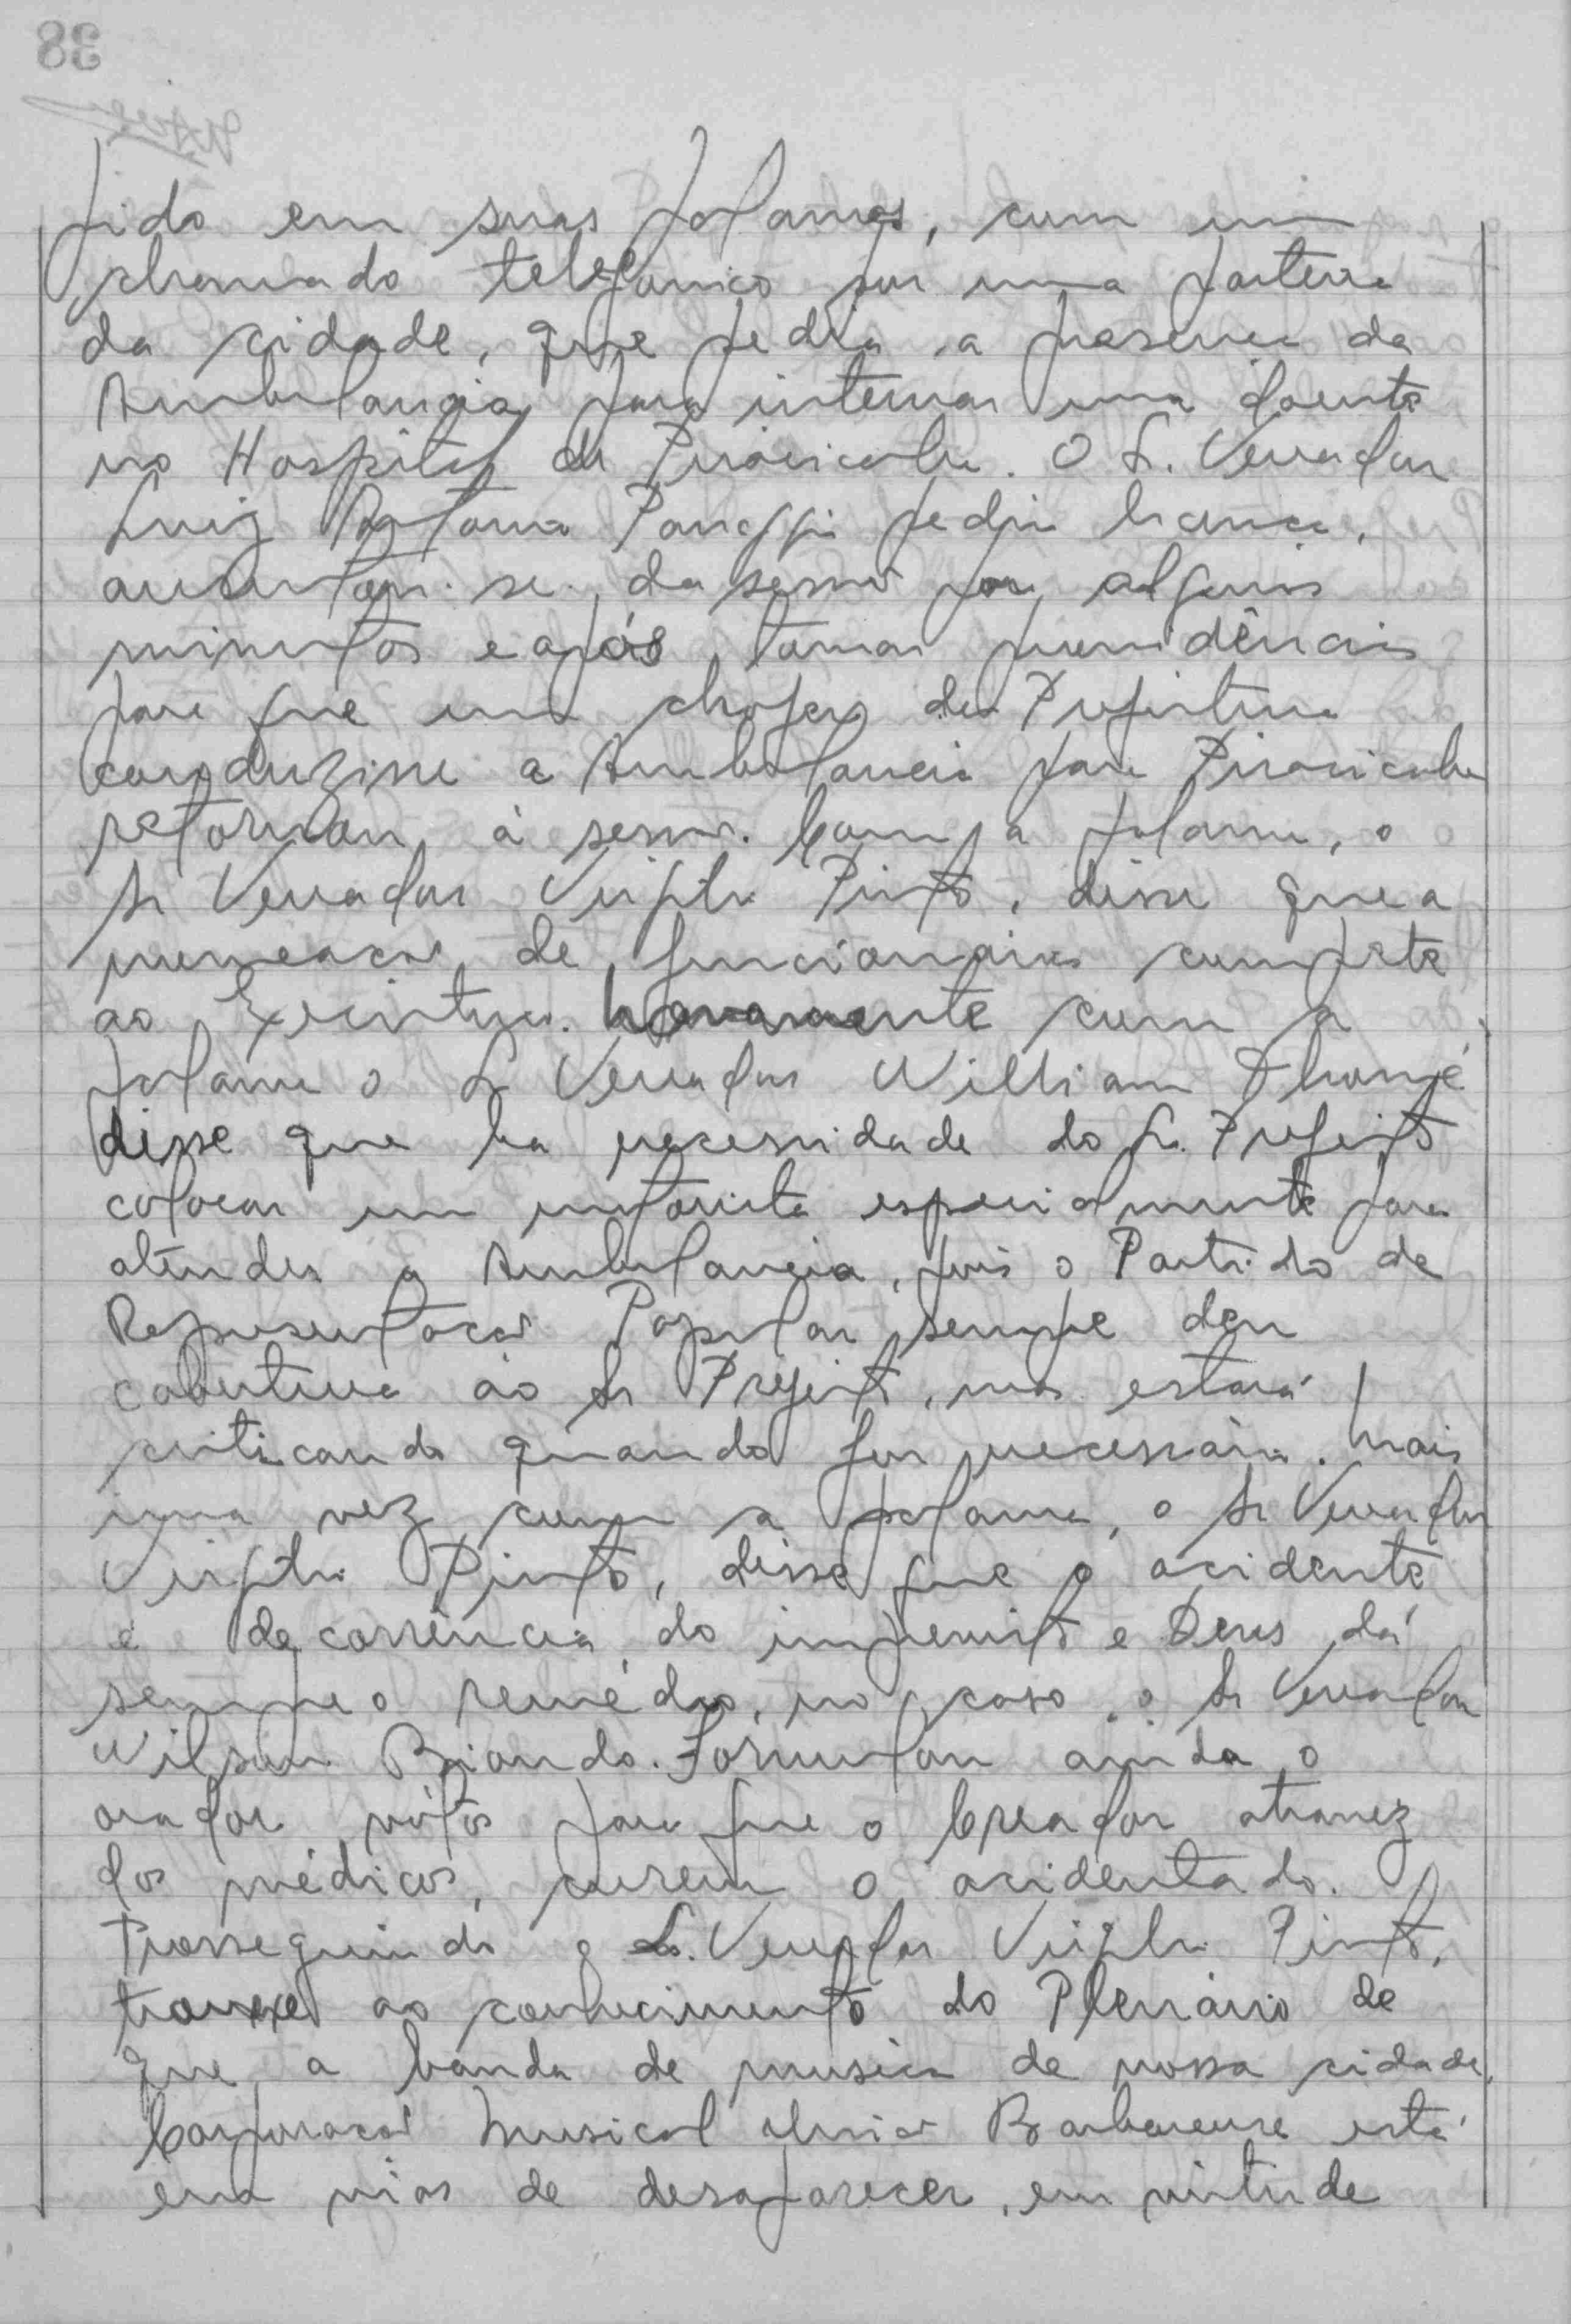 pido em suas palavras, com um
chamado telefonico por uma parteira
da cidade, que pedia a presença da
Ambulancia para internar uma doente
no Hospital de Piracicaba. O Sr. Vereador
Luiz Antonio Panaggi pediu licença,
ausentou-se da sessão por alguns
minutos e após tomar providências
para que um chofer da Prefeitura
conduzisse a Ambulancia para Piracicaba
retornou à sessão. Com a palavra, o
Sr Vereador Virgilio Pinto, disse que a
nomeação de funcionarios compete
ao Executivo. Novamente com a
palavra o Sr Vereador William Thomé
disse que ha necessidade do Sr. Prefeito
colocar um motorista especialmente para
atender a Ambulancia, pois o Partido de
Representação Popular sempre deu
cobertura ao Sr Prefeito, mas estará
criticando quando for necessário. Mais
uma vez com a palavra, o Sr Vereador
Virgilio Pinto, disse que o acidente
é decorrência do imprevisto e Deus dá
sempre o remédio, no caso o Sr Vereador
Wilson Biondo. Formulou ainda o
orador vótos para que o Creador atravez
dos médicos, curem o acidentado.
Prosseguindo o Sr. Vereador Virgilio Pinto,
trouxe ao conhecimento do Plenário de
que a banda de musica de nossa cidade,
Corporação Musical União Barbarense está
em vias de desaparecer, em virtude